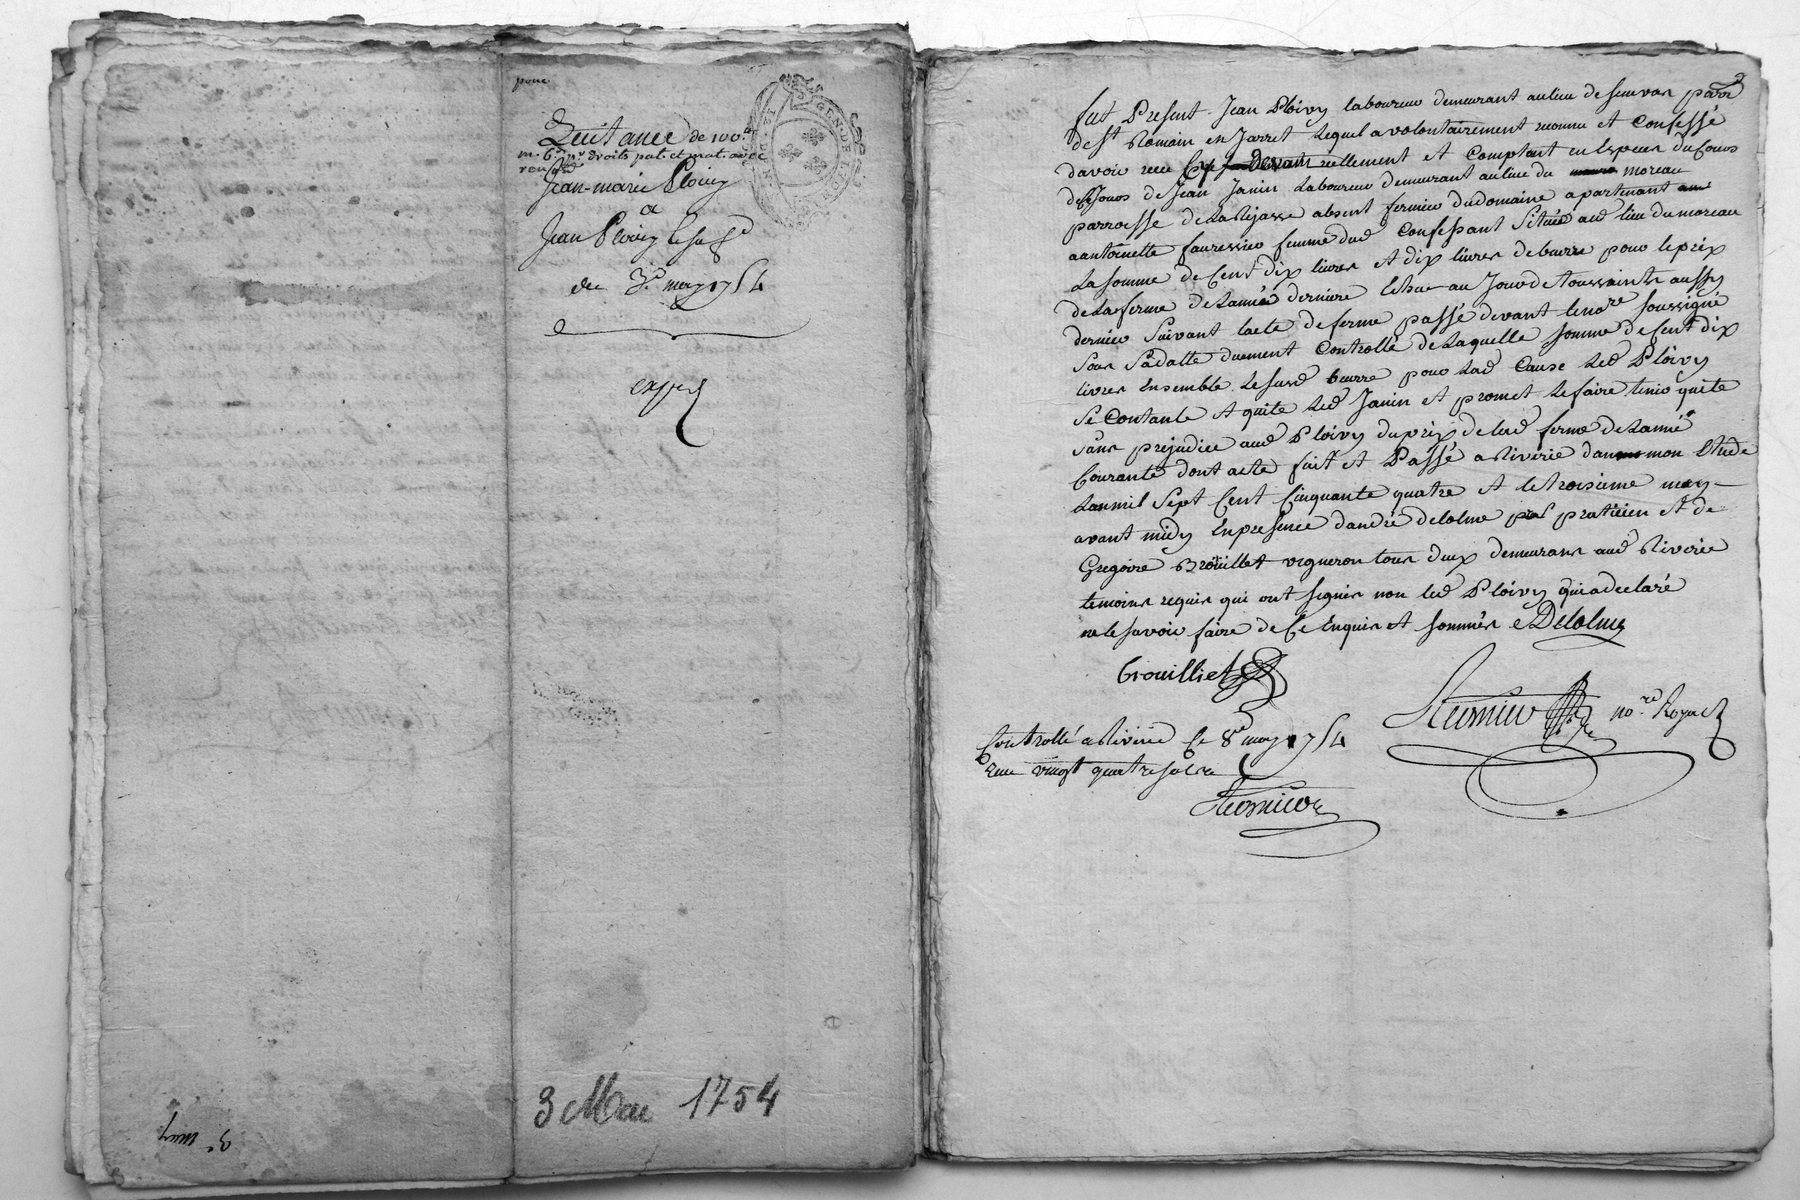 pour
Quitance de 100#
droits pat. et mat. avec
Jean-marie Ploivy
a
Jean Ploivy
du 3e may 1754
exped
3 Mai 1754
3e may
GEN. DE LYON
fut Present Jean Ploivy laboureur demeurant au lieu de parr
de st Romain en Jarret lequel a volontairement reconnu et Confessé
davoir receu reellement et Comptant en Especes du Cours
de ce Jour de Jean Janin Laboureur demeurant au lieu du moreau
parroisse de La Rajasse absent fermier du domaine apartenant
a antoinette fauressier femme dud Confessant Situé aud lieu du moreau
La somme de Cent dix livres et dix livres de beurre pour le prix
de La ferme de Lannée derniere Echue au Jour de toussaints aussy
dernier Suivant lacte de ferme passé devant le nore soussigné
sous Sa datte duement Controllé de Laquelle somme de Cent dix
livres Ensemble de susd beurre pour Lad Cause Led Ploivy
Se Contante et quite Led Janin et promet Le faire tenir quite
sans prejudice aud Ploivy du prix de lad ferme de Lannée
Courante dont acte fait et Passé a Riverie dans mon Etude
Lan mil Sept Cent Cinquante quatre et le troisieme may
avant midy En presence dandré delolme praticien et de
Gregoire Brouillet vigneron tous deux demeurans aud Riverie
temoins requis qui ont signés non led Ploivy qui a declaré
ne le savoir faire de Ce Enquis et sommés Delolme
Brouilliet
nore Royal
Controllé a Riverie Ce 8e may 1754
Receu vingt quatre sols